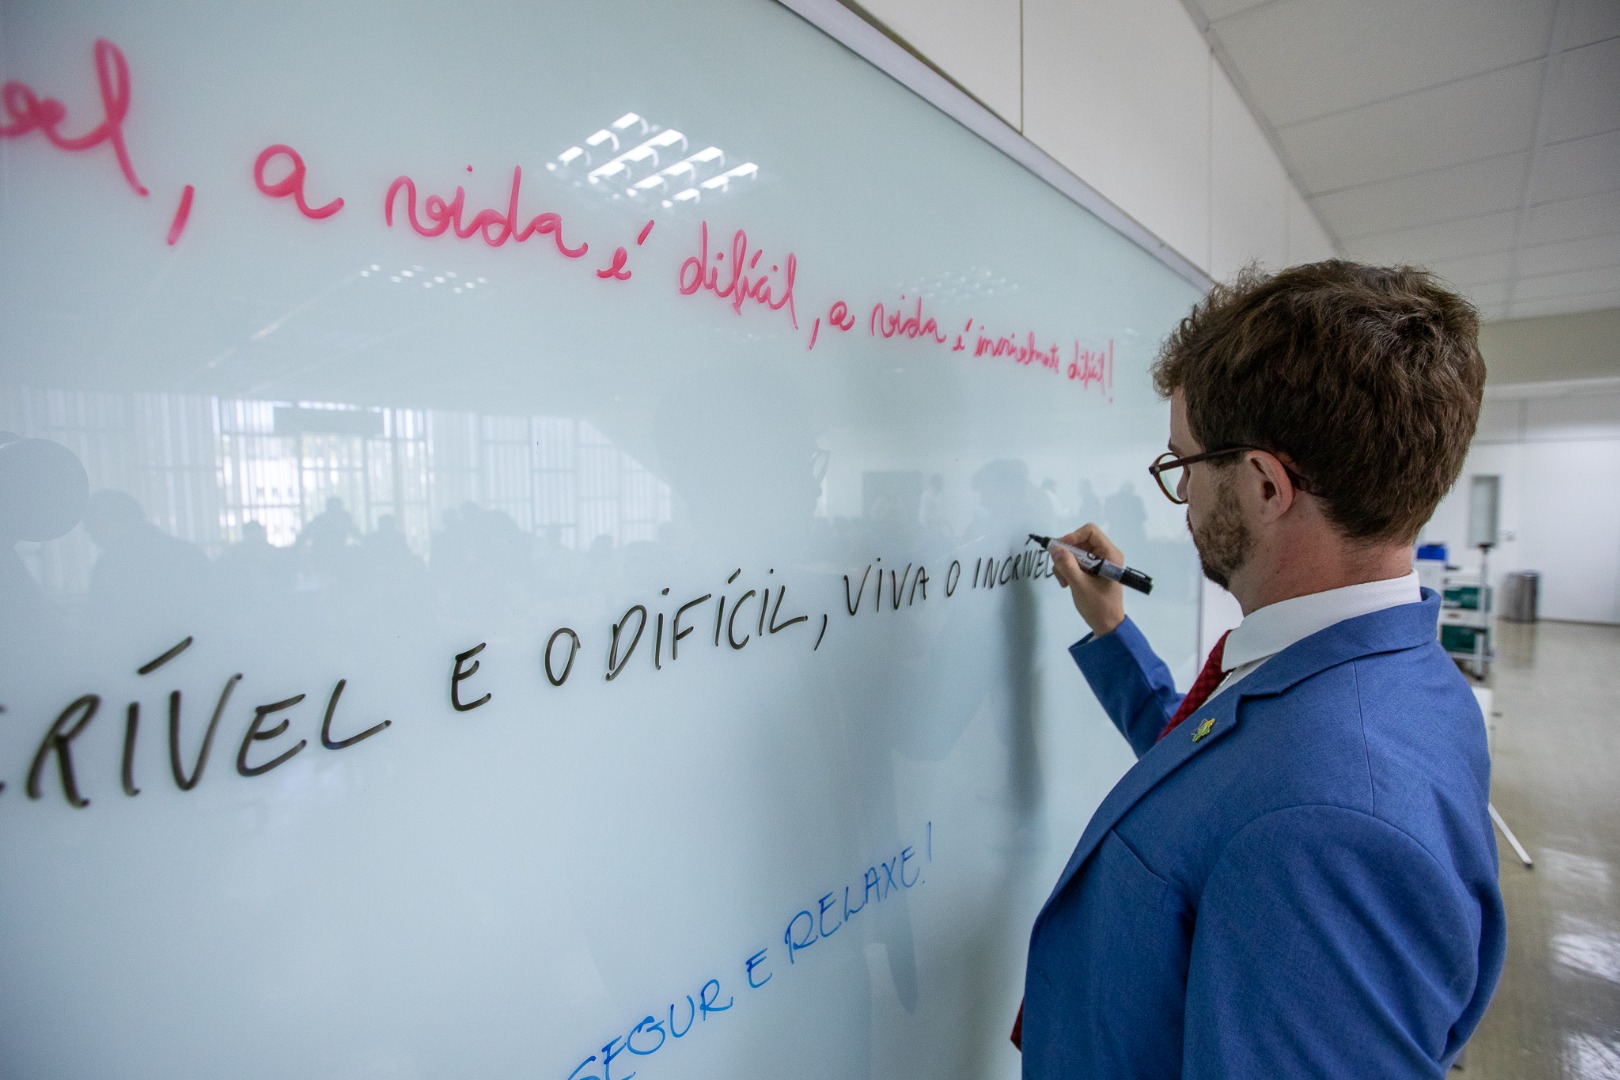 el, a vida é difícil, a vida é incrivelmente difícil!
CRÍVEL E O DIFÍCIL, VIVA O INCRÍVEL
SEGUR E RELAXE!